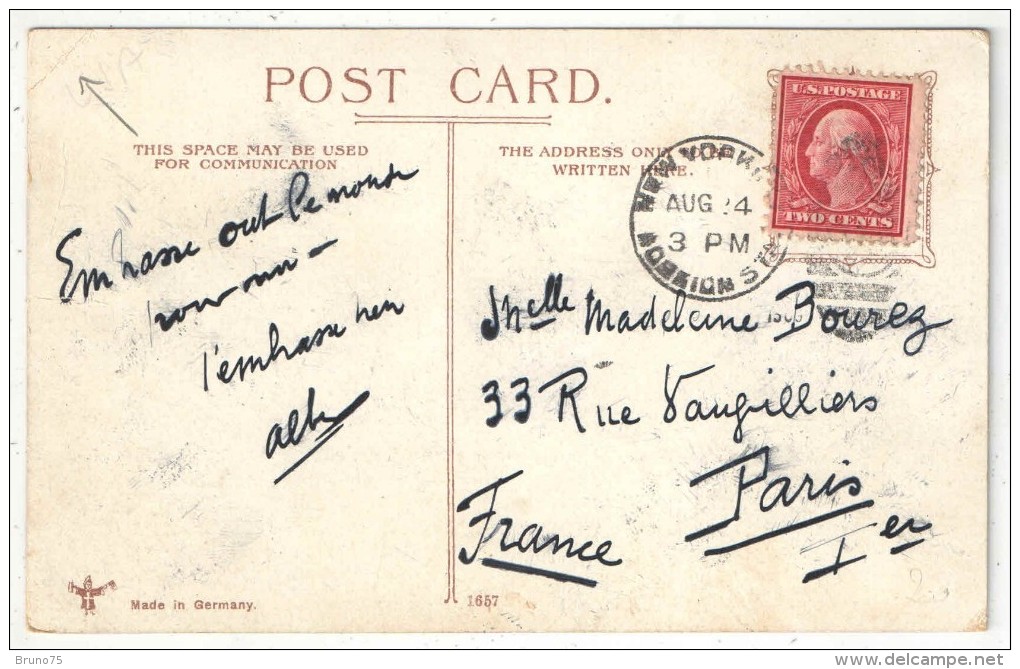 POST CARD.
THIS SPACE MAY BE USED
FOR COMMUNICATION
THE ADDRESS ONLY
WRITTEN HERE.
U.S. POSTAGE
TWO CENTS
NEW YORK
AUG 24
3 PM
Embrasse tout le monde
pour moi –
t'embrasse bien
Mselle Madeleine Bourez
33 Rue Vaugilliers
Paris
Ier
France
Made in Germany.
1657
Bruno75